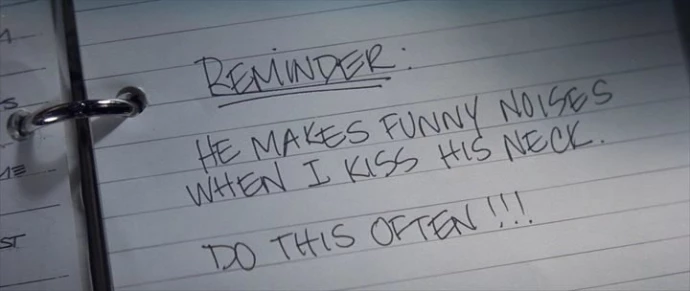 REMINDER:
HE MAKES FUNNY NOISES
WHEN I KISS HIS NECK.
DO THIS OFTEN!!!